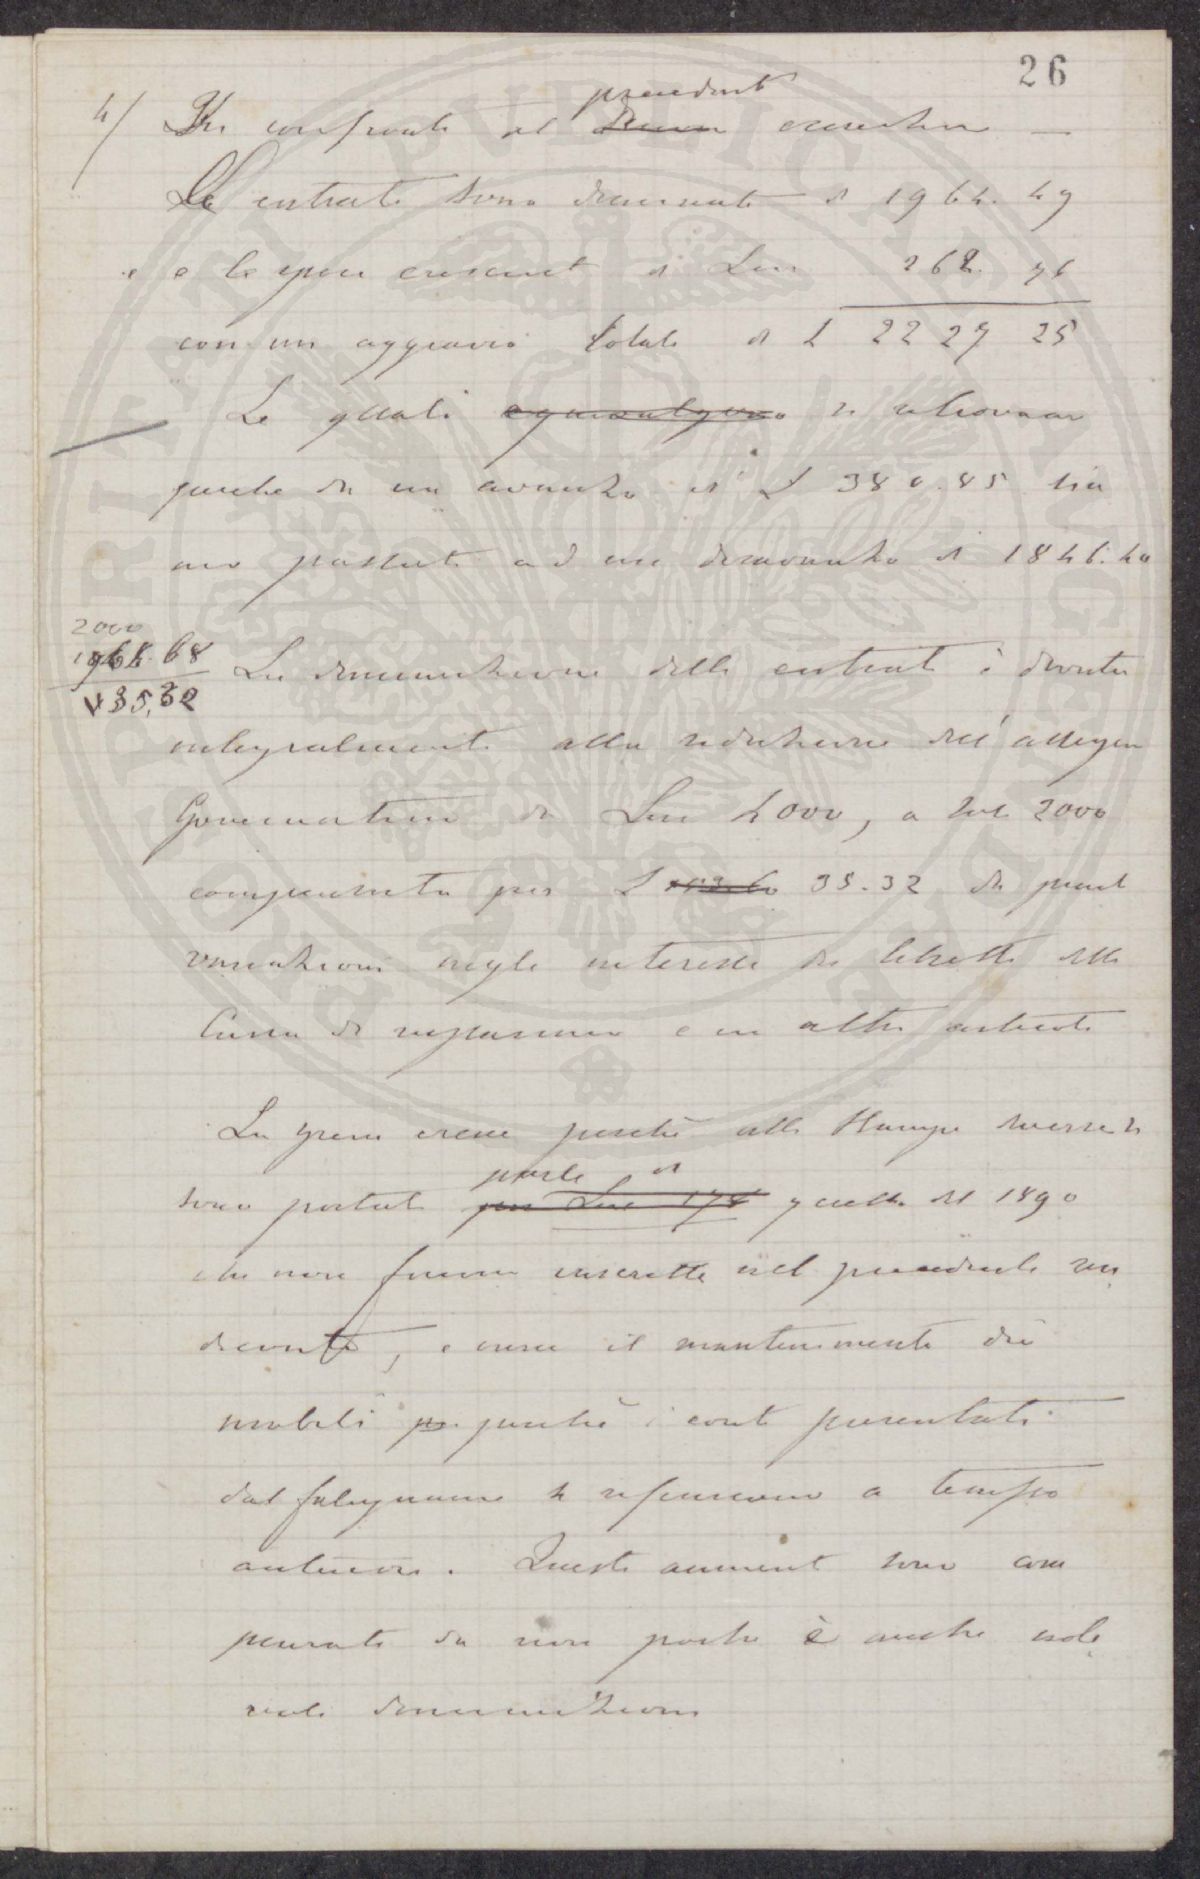 26
4/ In confronto al precedente esercizio —
Le entrate sono diminuite di 1964.49
e le spese cresciute di Lire 262.76
con un aggravio totale di L 2227 25
Le quali equivalgono si ritrovano
perché da un avanzo di L 380.85 si è
passati ad un disavanzo di 1846.40
2000
1964.68
35,32
La diminuzione delle entrate è dovuta
integralmente alla riduzione dell'assegno
Governativo da Lire 4000, a sole 2000
compensata per L 35.32 da piccole
variazioni negli interessi di libretti della
Cassa di risparmio e in altre entrate
La spesa cresce perché alle stampe diverse si
sono portate per Lire 178 parte di quelle del 1890
che non furono inscritte nel precedente ren
diconto, e cresce il mantenimento dei
mobili perché i conti presentati
dal falegname si riferiscono a tempo
anteriore. Questi aumenti sono com
pensati da non poche e anche note
voli diminuzioni
PROSPERITATI PUBLICAE AUGENDAE